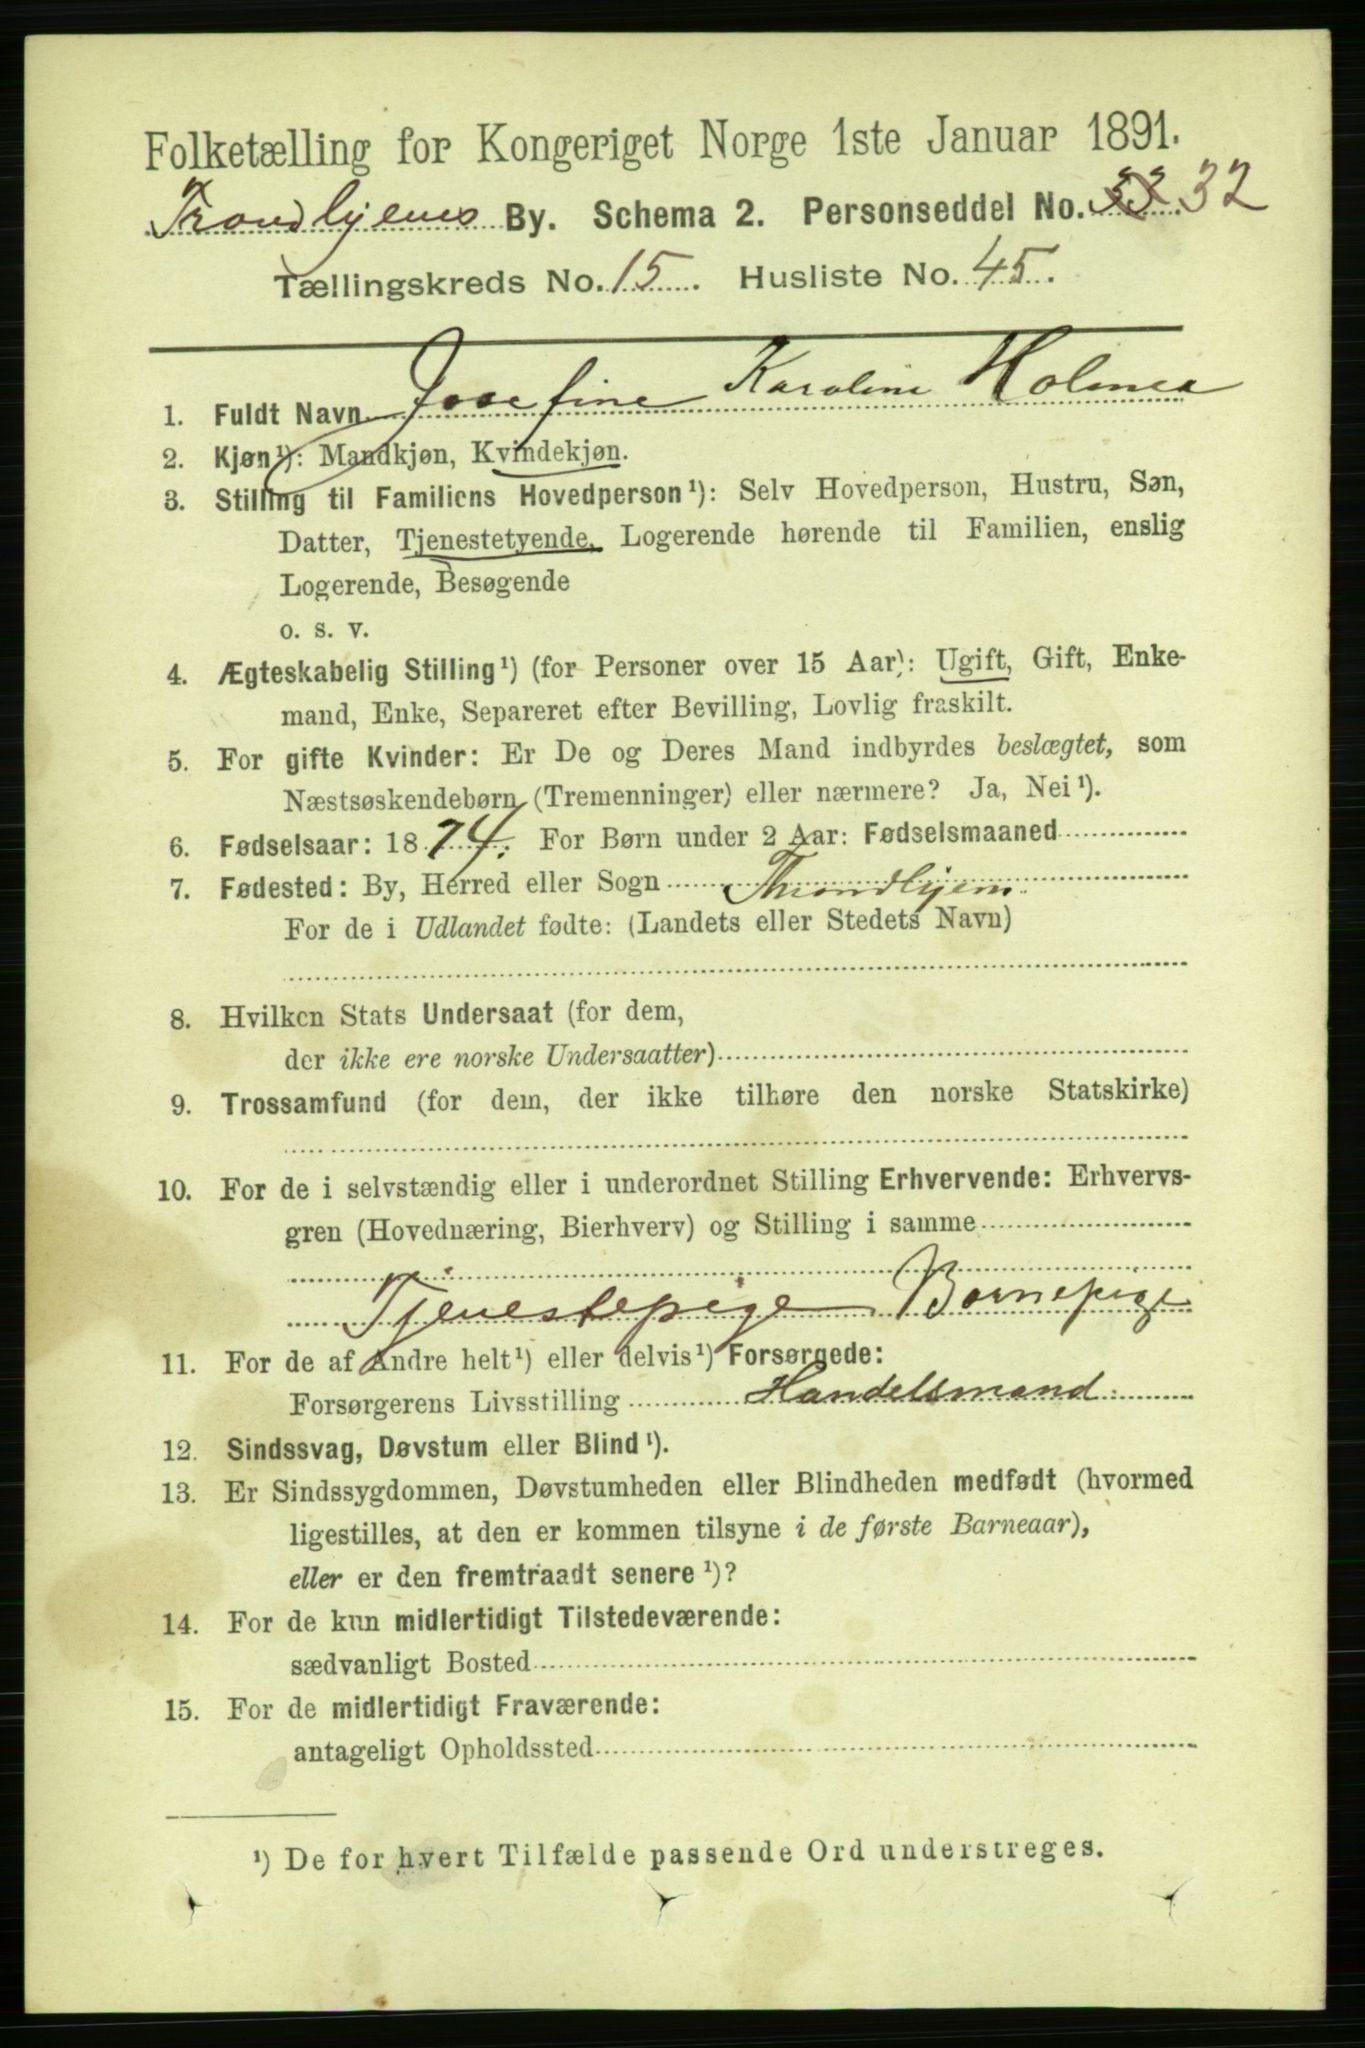 Folketælling for Kongeriget Norge 1ste Januar 1891.
Trondhjems By. Schema 2. Personseddel No. 33 32
Tællingskreds No. 15. Husliste No. 45.
1. Fuldt Navn Josefine Karoline Holmea
2. Kjøn¹): Mandkjøn, Kvindekjøn.
3. Stilling til Familiens Hovedperson¹): Selv Hovedperson, Hustru, Søn,
Datter, Tjenestetyende, Logerende hørende til Familien, enslig
Logerende, Besøgende
o. s. v.
4. Ægteskabelig Stilling¹) (for Personer over 15 Aar): Ugift, Gift, Enke-
mand, Enke, Separeret efter Bevilling, Lovlig fraskilt.
5. For gifte Kvinder: Er De og Deres Mand indbyrdes beslægtet, som
Næstsøskendebørn (Tremenninger) eller nærmere? Ja, Nei¹).
6. Fødselsaar: 1874. For Børn under 2 Aar: Fødselsmaaned
7. Fødested: By, Herred eller Sogn Throndhjem.
For de i Udlandet fødte: (Landets eller Stedets Navn)
8. Hvilken Stats Undersaat (for dem,
der ikke ere norske Undersaatter)
9. Trossamfund (for dem, der ikke tilhøre den norske Statskirke)
10. For de i selvstændig eller i underordnet Stilling Erhvervende: Erhvervs-
gren (Hovednæring, Bierhverv) og Stilling i samme
Tjenestepige Barnepige
11. For de af Andre helt¹) eller delvis¹) Forsørgede:
Forsørgerens Livsstilling Handelsmand
12. Sindssvag, Døvstum eller Blind¹).
13. Er Sindssygdommen, Døvstumheden eller Blindheden medfødt (hvormed
ligestilles, at den er kommen tilsyne i de første Barneaar),
eller er den fremtraadt senere¹)?
14. For de kun midlertidigt Tilstedeværende:
sædvanligt Bosted
15. For de midlertidigt Fraværende:
antageligt Opholdssted
¹) De for hvert Tilfælde passende Ord understreges.